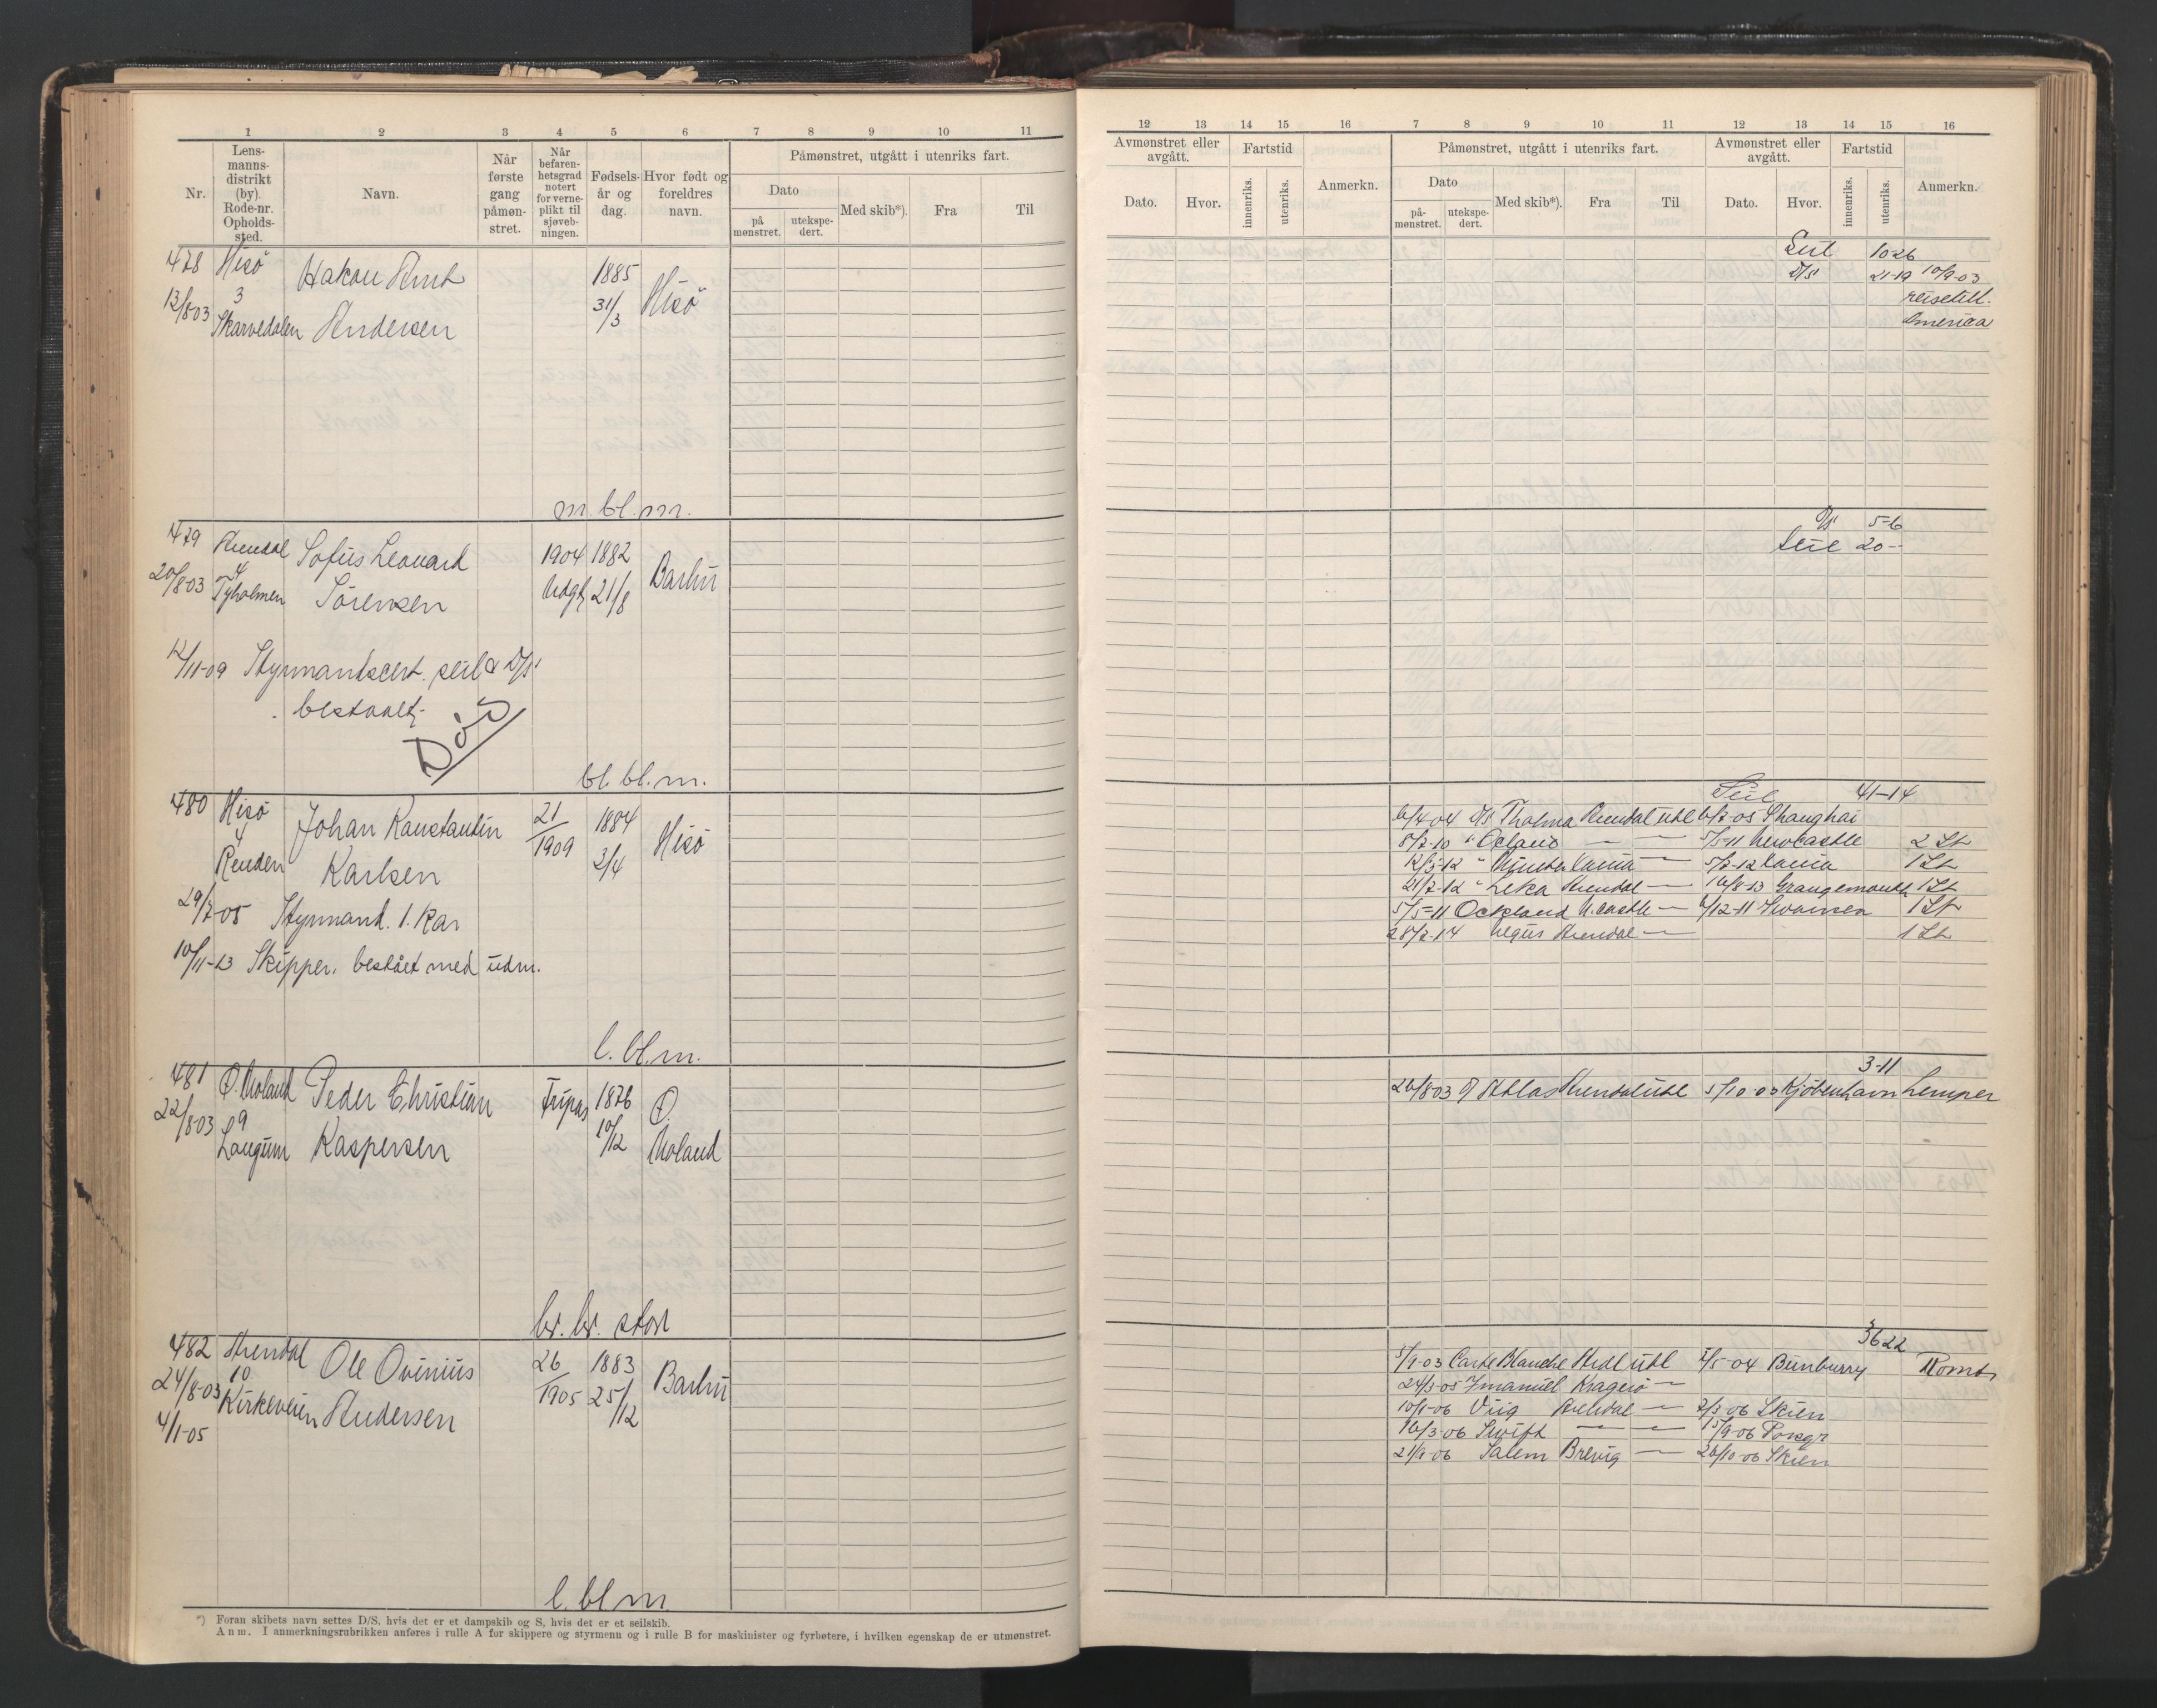 1 2 3 4 5 6 7 8 9 10 11
Nr. Lens-manns-distrikt (by). Rode-nr. Opholds-sted. Navn. Når første gang påmøn-stret. Når befaren-hetsgrad notert for verne-plikt til sjøveb-ningen. Fødsels-år og dag. Hvor født og foreldres navn. Påmønstret, utgått i utenriks fart.
Dato Med skib*). Fra Til
på mønstret. utekspe-dert.
478 Hisö Hakon Arnt 1885 Hisö
13/8-03 3 31/3
Skarvedalen Andersen
m. bl. m.
479 Arendal Sofus Leonard 1904 1882 Barbu
20/8-03 4 Tyholmen Sörensen Udgt 21/8
12/11-09 Styrmandscert. seil & D/S
bestaaet.
Död
bl. bl. m.
480 Hisö Johan Konstantin 21/1909 1884 Hisö
4 Renden Karlsen 3/4
29/7-05 Styrmand. 1. Kar
10/11-13 Skipper. bestået med udm.
l. bl. m.
481 Ø. Moland Peder Christian Fripas 1876 Ø. Moland
22/8-03 9 10/12
Langum Kaspersen
br. br. stor
482 Arendal Ole Ovinius 26/1905 1883 Barbu
24/8-03 10 Kirkeveien Andersen 25/12
4/1-05
l. bl m
*) Foran skibets navn settes D/S, hvis det er et dampskib og S, hvis det er et seilskib.
Anm. I anmerkningsrubrikken anføres i rulle A for skippere og styrmenn og i rulle B for maskinister og fyrbøtere, i hvilken egenskap de er utmønstret.
12 13 14 15 16 7 8 9 10 11 12 13 14 15 16
Avmønstret eller avgått. Fartstid Anmerkn. Påmønstret, utgått i utenriks fart. Avmønstret eller avgått. Fartstid Anmerkn.
Dato. Hvor. innenriks. utenriks. Dato Med skib*). Fra Til Dato. Hvor. innenriks. utenriks.
på-mønstret. utekspe-dert.
Seil 10-26
D/S 21-19 10/9-03
reisetill.
America
D/S 5-6
Seil 20--
Seil 41-14
16/4-04 D/S Tholma Arendal utl 6/7-05 Shanghai
8/2-10 " Ocland — — 5/5-11 Newcastle 2 St
12/3-12 " — 5/7-12 1 St
21/7-12 " Leka Arendal — 16/8-13 Grangemouth 1 St
5/5-11 Ockland N.castle — 6/12-11 Swansea 1 St
28/2-14 Arendal — 1 St
3-11
26/8-03 Atlas Arendal utl 5/10-03 Kjöbenhavn Lemper
36 22
5/9-03 Carte Blanche Ardl utl 7/5-04 Bunburry Romt
24/3-05 Imanuel Kragerö —
10/1-06 Viig Arendal — 2/3-06 Skien
16/3-06 Swift — — 15/9-06 Porsgr
21/9-06 Salem Brevig — 26/10-06 Skien